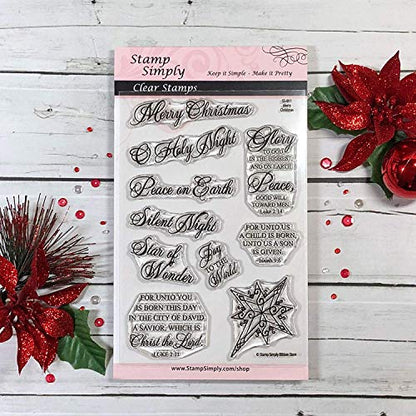 Stamp
Simply
Keep it Simple - Make it Pretty
Clear Stamps
Christmas
Merry Christmas
O Holy Night
Glory
TO GOD
IN THE HIGHEST,
AND ON EARTH
Peace,
GOOD WILL
TOWARD MEN.
Luke 2:14
Peace on Earth
Silent Night
FOR UNTO US
A CHILD IS BORN,
UNTO US A SON
IS GIVEN.
Isaiah 9:6
Star of
Wonder
Joy
TO THE
World
FOR UNTO YOU
IS BORN THIS DAY
IN THE CITY OF DAVID
A SAVIOR, WHICH IS
Christ the Lord.
LUKE 2:11
www.StampSimply.com/shop
© Stamp Simply Ribbon Store